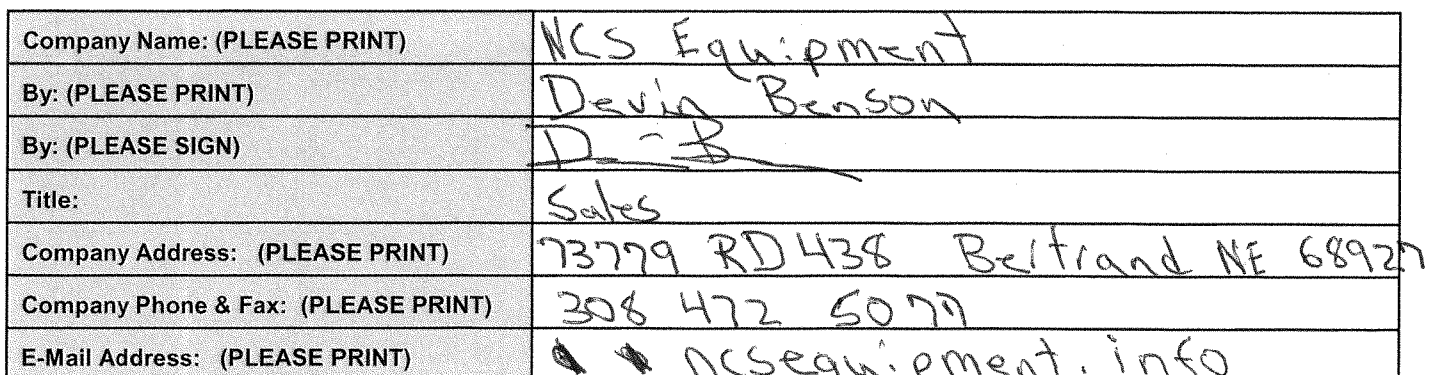 Company Name: (PLEASE PRINT) NCS Equipment
By: (PLEASE PRINT) Devin Benson
By: (PLEASE SIGN) D B
Title: Sales
Company Address: (PLEASE PRINT) 73779 RD 438 Bertrand NE 68927
Company Phone & Fax: (PLEASE PRINT) 308 472 5077
E-Mail Address: (PLEASE PRINT) ncsequipment.info